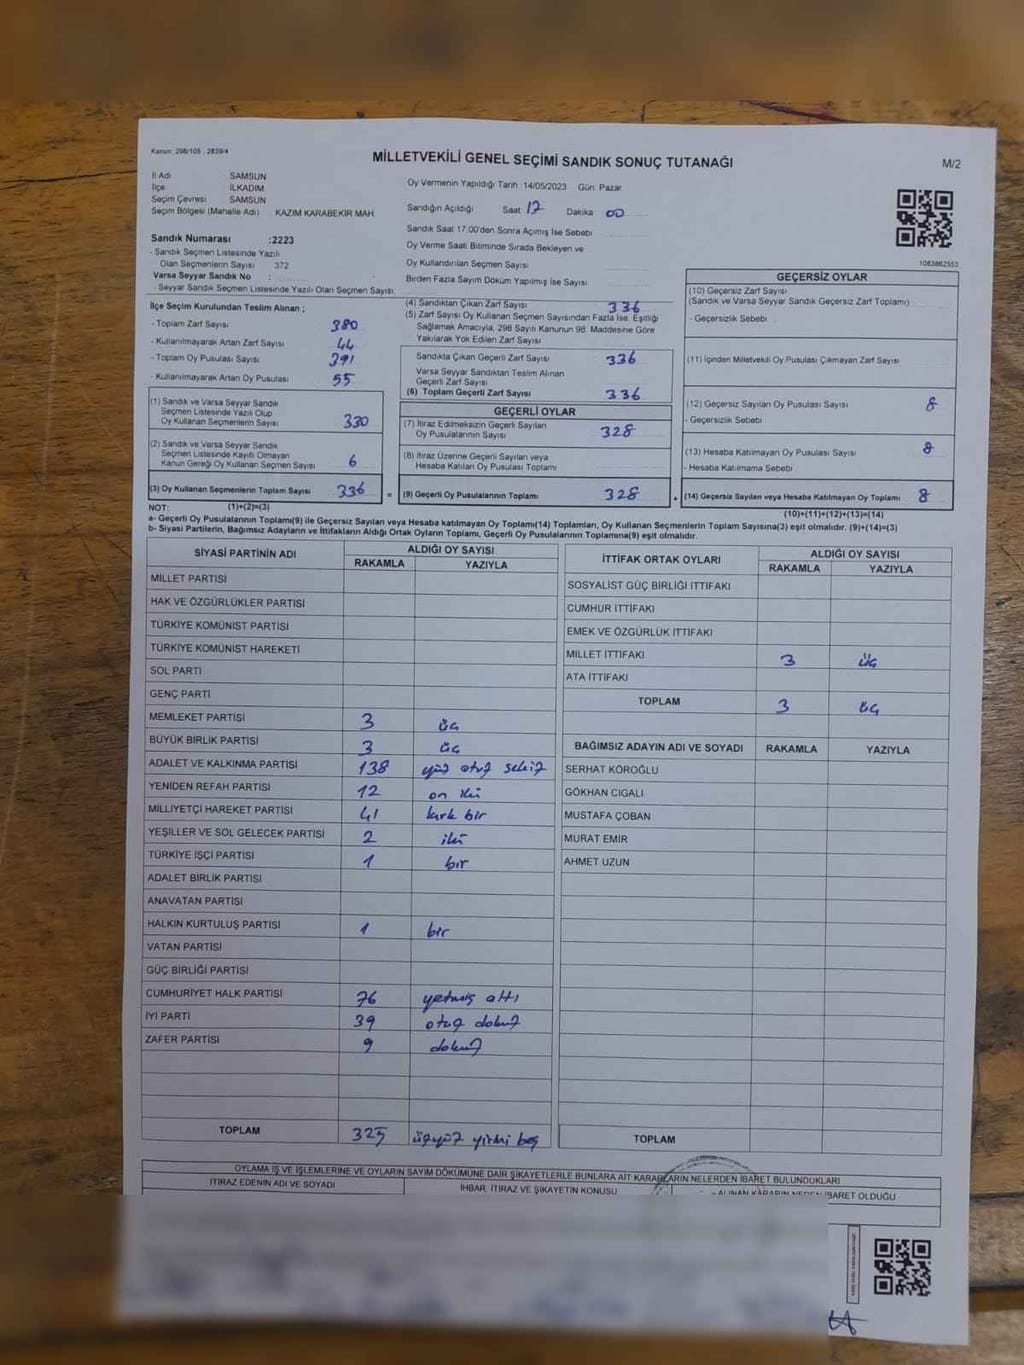 Kanun: 298/105 , 2839/4
MİLLETVEKİLİ GENEL SEÇİMİ SANDIK SONUÇ TUTANAĞI
M/2
İl Adı SAMSUN
İlçe İLKADIM
Seçim Çevresi SAMSUN
Seçim Bölgesi (Mahalle Adı) KAZIM KARABEKİR MAH.
Sandık Numarası :2223
- Sandık Seçmen Listesinde Yazılı
Olan Seçmenlerin Sayısı 372
Varsa Seyyar Sandık No :
- Seyyar Sandık Seçmen Listesinde Yazılı Olan Seçmen Sayısı
Oy Vermenin Yapıldığı Tarih :14/05/2023 Gün: Pazar
Sandığın Açıldığı Saat 17 Dakika 00
Sandık Saat 17:00'den Sonra Açılmış İse Sebebi
Oy Verme Saati Bitiminde Sırada Bekleyen ve
Oy Kullandırılan Seçmen Sayısı
Birden Fazla Sayım Döküm Yapılmış İse Sayısı
1083862553
İlçe Seçim Kurulundan Teslim Alınan ;
- Toplam Zarf Sayısı 380
- Kullanılmayarak Artan Zarf Sayısı 44
- Toplam Oy Pusulası Sayısı 391
- Kullanılmayarak Artan Oy Pusulası 55
(1) Sandık ve Varsa Seyyar Sandık
Seçmen Listesinde Yazılı Olup
Oy Kullanan Seçmenlerin Sayısı 330
(2) Sandık ve Varsa Seyyar Sandık
Seçmen Listesinde Kayıtlı Olmayan
Kanun Gereği Oy Kullanan Seçmen Sayısı 6
(3) Oy Kullanan Seçmenlerin Toplam Sayısı 336 =
(1)+(2)=(3)
(4) Sandıktan Çıkan Zarf Sayısı 336
(5) Zarf Sayısı Oy Kullanan Seçmen Sayısından Fazla İse, Eşitliği
Sağlamak Amacıyla, 298 Sayılı Kanunun 98. Maddesine Göre
Yakılarak Yok Edilen Zarf Sayısı
Sandıkta Çıkan Geçerli Zarf Sayısı 336
Varsa Seyyar Sandıktan Teslim Alınan
Geçerli Zarf Sayısı
(6) Toplam Geçerli Zarf Sayısı 336
GEÇERLİ OYLAR
(7) İtiraz Edilmeksizin Geçerli Sayılan
Oy Pusulalarının Sayısı 328
(8) İtiraz Üzerine Geçerli Sayılan veya
Hesaba Katılan Oy Pusulası Toplamı
(9) Geçerli Oy Pusulalarının Toplamı 328 +
GEÇERSİZ OYLAR
(10) Geçersiz Zarf Sayısı
(Sandık ve Varsa Seyyar Sandık Geçersiz Zarf Toplamı)
- Geçersizlik Sebebi
(11) İçinden Milletvekili Oy Pusulası Çıkmayan Zarf Sayısı
(12) Geçersiz Sayılan Oy Pusulası Sayısı 8
- Geçersizlik Sebebi
(13) Hesaba Katılmayan Oy Pusulası Sayısı 8
- Hesaba Katılmama Sebebi
(14) Geçersiz Sayılan veya Hesaba Katılmayan Oy Toplamı 8
(10)+(11)+(12)+(13)=(14)
NOT:
a- Geçerli Oy Pusulalarının Toplamı(9) ile Geçersiz Sayılan veya Hesaba katılmayan Oy Toplamı(14) Toplamları, Oy Kullanan Seçmenlerin Toplam Sayısına(3) eşit olmalıdır. (9)+(14)=(3)
b- Siyasi Partilerin, Bağımsız Adayların ve İttifakların Aldığı Ortak Oyların Toplamı, Geçerli Oy Pusulalarının Toplamına(9) eşit olmalıdır.
SİYASİ PARTİNİN ADI ALDIĞI OY SAYISI
RAKAMLA YAZIYLA
MİLLET PARTİSİ
HAK VE ÖZGÜRLÜKLER PARTİSİ
TÜRKİYE KOMÜNİST PARTİSİ
TÜRKİYE KOMÜNİST HAREKETİ
SOL PARTİ
GENÇ PARTİ
MEMLEKET PARTİSİ 3 üç
BÜYÜK BİRLİK PARTİSİ 3 üç
ADALET VE KALKINMA PARTİSİ 138 yüz otuz sekiz
YENİDEN REFAH PARTİSİ 12 on iki
MİLLİYETÇİ HAREKET PARTİSİ 41 kırk bir
YEŞİLLER VE SOL GELECEK PARTİSİ 2 iki
TÜRKİYE İŞÇİ PARTİSİ 1 bir
ADALET BİRLİK PARTİSİ
ANAVATAN PARTİSİ
HALKIN KURTULUŞ PARTİSİ 1 bir
VATAN PARTİSİ
GÜÇ BİRLİĞİ PARTİSİ
CUMHURİYET HALK PARTİSİ 76 yetmiş altı
İYİ PARTİ 39 otuz dokuz
ZAFER PARTİSİ 9 dokuz
TOPLAM 325 üçyüz yirmi beş
İTTİFAK ORTAK OYLARI ALDIĞI OY SAYISI
RAKAMLA YAZIYLA
SOSYALİST GÜÇ BİRLİĞİ İTTİFAKI
CUMHUR İTTİFAKI
EMEK VE ÖZGÜRLÜK İTTİFAKI
MİLLET İTTİFAKI 3 üç
ATA İTTİFAKI
TOPLAM 3 üç
BAĞIMSIZ ADAYIN ADI VE SOYADI RAKAMLA YAZIYLA
SERHAT KÖROĞLU
GÖKHAN CIGALI
MUSTAFA ÇOBAN
MURAT EMİR
AHMET UZUN
TOPLAM
OYLAMA İŞ VE İŞLEMLERİNE VE OYLARIN SAYIM DÖKÜMÜNE DAİR ŞİKAYETLERLE BUNLARA AİT KARARLARIN NELERDEN İBARET BULUNDUKLARI
İTİRAZ EDENİN ADI VE SOYADI İHBAR, İTİRAZ VE ŞİKAYETİN KONUSU ALINAN KARARIN NEDEN İBARET OLDUĞU